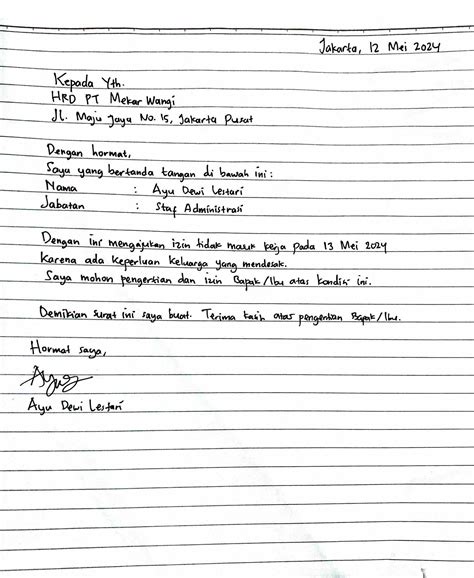 Jakarta, 12 Mei 2024
Kepada Yth.
HRD PT Mekar Wangi
Jl. Maju Jaya No. 15, Jakarta Pusat
Dengan hormat,
Saya yang bertanda tangan di bawah ini :
Nama : Ayu Dewi Lestari
Jabatan : Staf Administrasi
Dengan ini mengajukan izin tidak masuk kerja pada 13 Mei 2024
karena ada keperluan keluarga yang mendesak.
Saya mohon pengertian dan izin Bapak/Ibu atas kondisi ini.
Demikian surat ini saya buat. Terima kasih atas pengertian Bapak/Ibu.
Hormat saya,
Ayu
Ayu Dewi Lestari